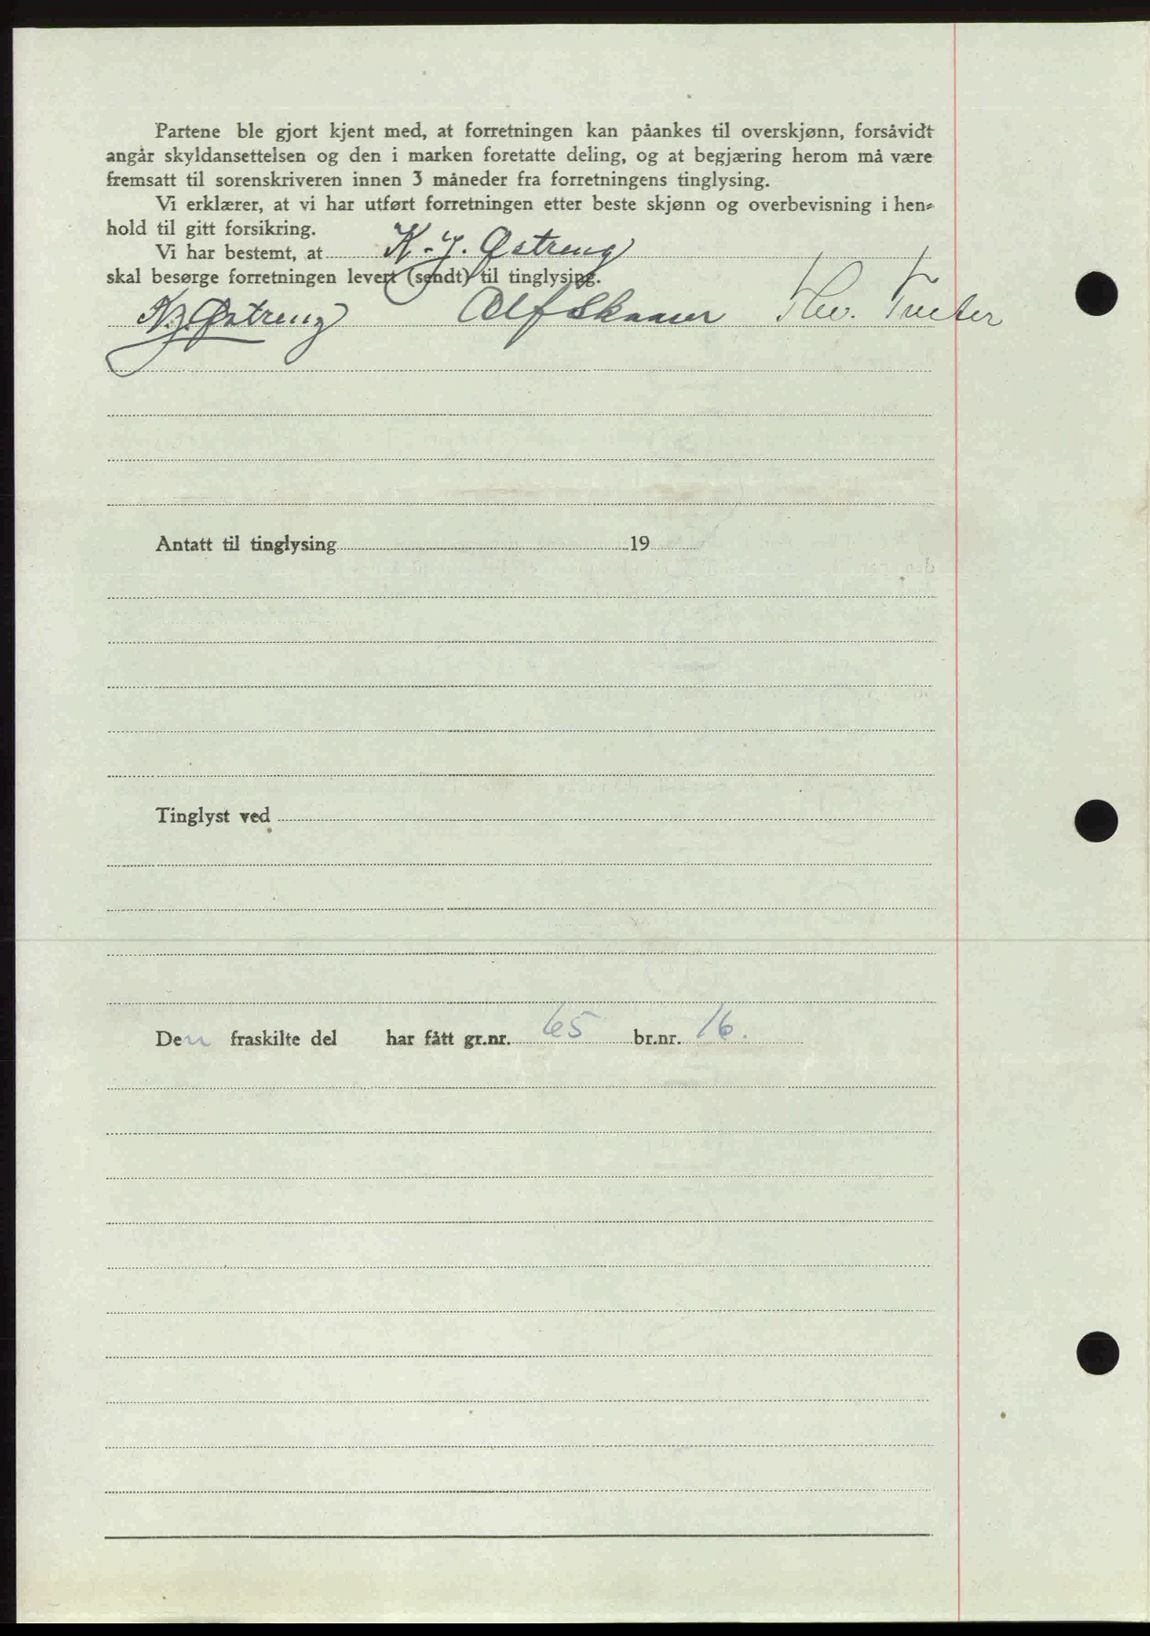 Partene ble gjort kjent med, at forretningen kan påankes til overskjønn, forsåvidt
angår skyldansettelsen og den i marken foretatte deling, og at begjæring herom må være
fremsatt til sorenskriveren innen 3 måneder fra forretningens tinglysing.
Vi erklærer, at vi har utført forretningen etter beste skjønn og overbevisning i hen-
hold til gitt forsikring.
Vi har bestemt, at K. J. Østreng
skal besørge forretningen levert (sendt) til tinglysing.
K. J. Østreng Alf Skaaer
Antatt til tinglysing 19
Tinglyst ved
Den fraskilte del har fått gr.nr. 65 br.nr. 16.